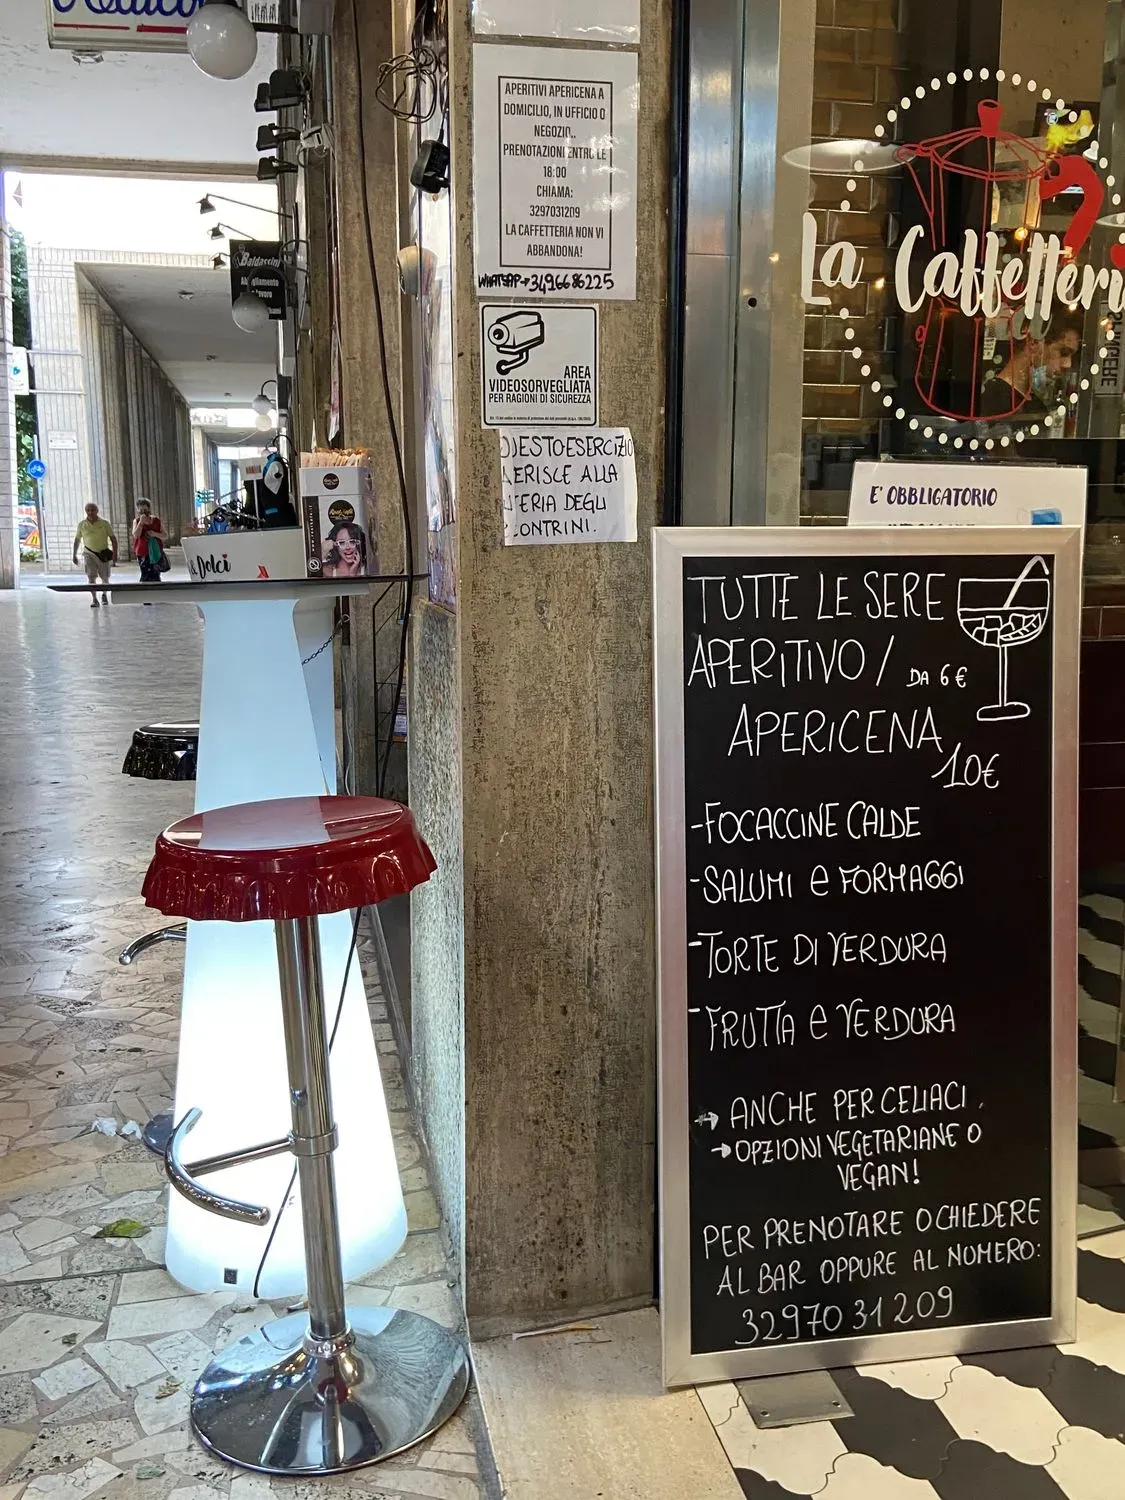 APERITIVI APERICENA A
DOMICILIO, IN UFFICIO O
NEGOZIO..
PRENOTAZIONI ENTRO LE
18:00
CHIAMA:
3297031209
LA CAFFETTERIA NON VI
ABBANDONA!
WHATSAPP→3496686225
AREA
VIDEOSORVEGLIATA
PER RAGIONI DI SICUREZZA
QUESTO ESERCIZIO
ERISCE ALLA
TERIA DEGLI
ONTRINI.
Baldassini
& Dolci
La Caffetteri
E' OBBLIGATORIO
TUTTE LE SERE
APERITIVO / DA 6€
APERICENA
10€
-FOCACCINE CALDE
-SALUMI e FORMAGGI
-TORTE DI VERDURA
-FRUTTA e VERDURA
→ ANCHE PER CELIACI.
→ OPZIONI VEGETARIANE O
VEGAN!
PER PRENOTARE O CHIEDERE
AL BAR OPPURE AL NUMERO:
3297031209